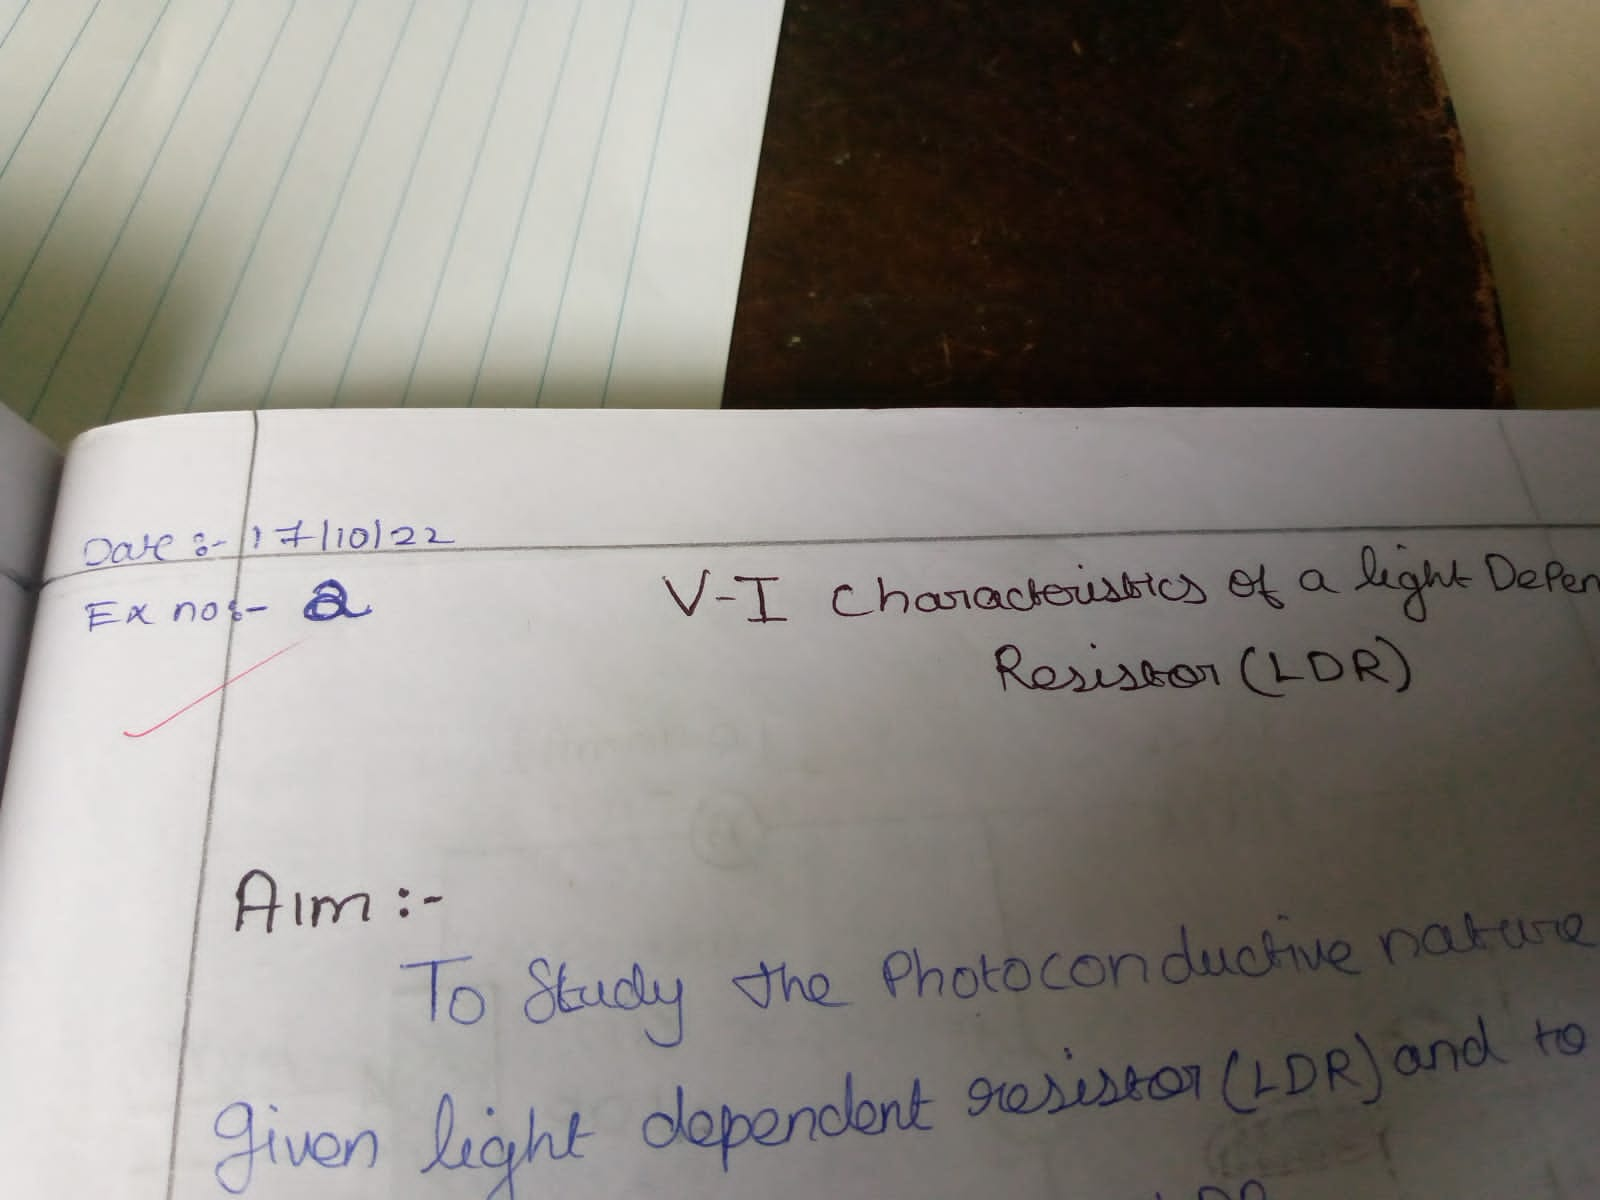 Date :- 17/10/22
Ex no:- 2
V-I Characteristics of a light Depen
Resistor (LDR)
Aim :-
To Study the Photoconductive nature
given light dependent resistor (LDR) and to